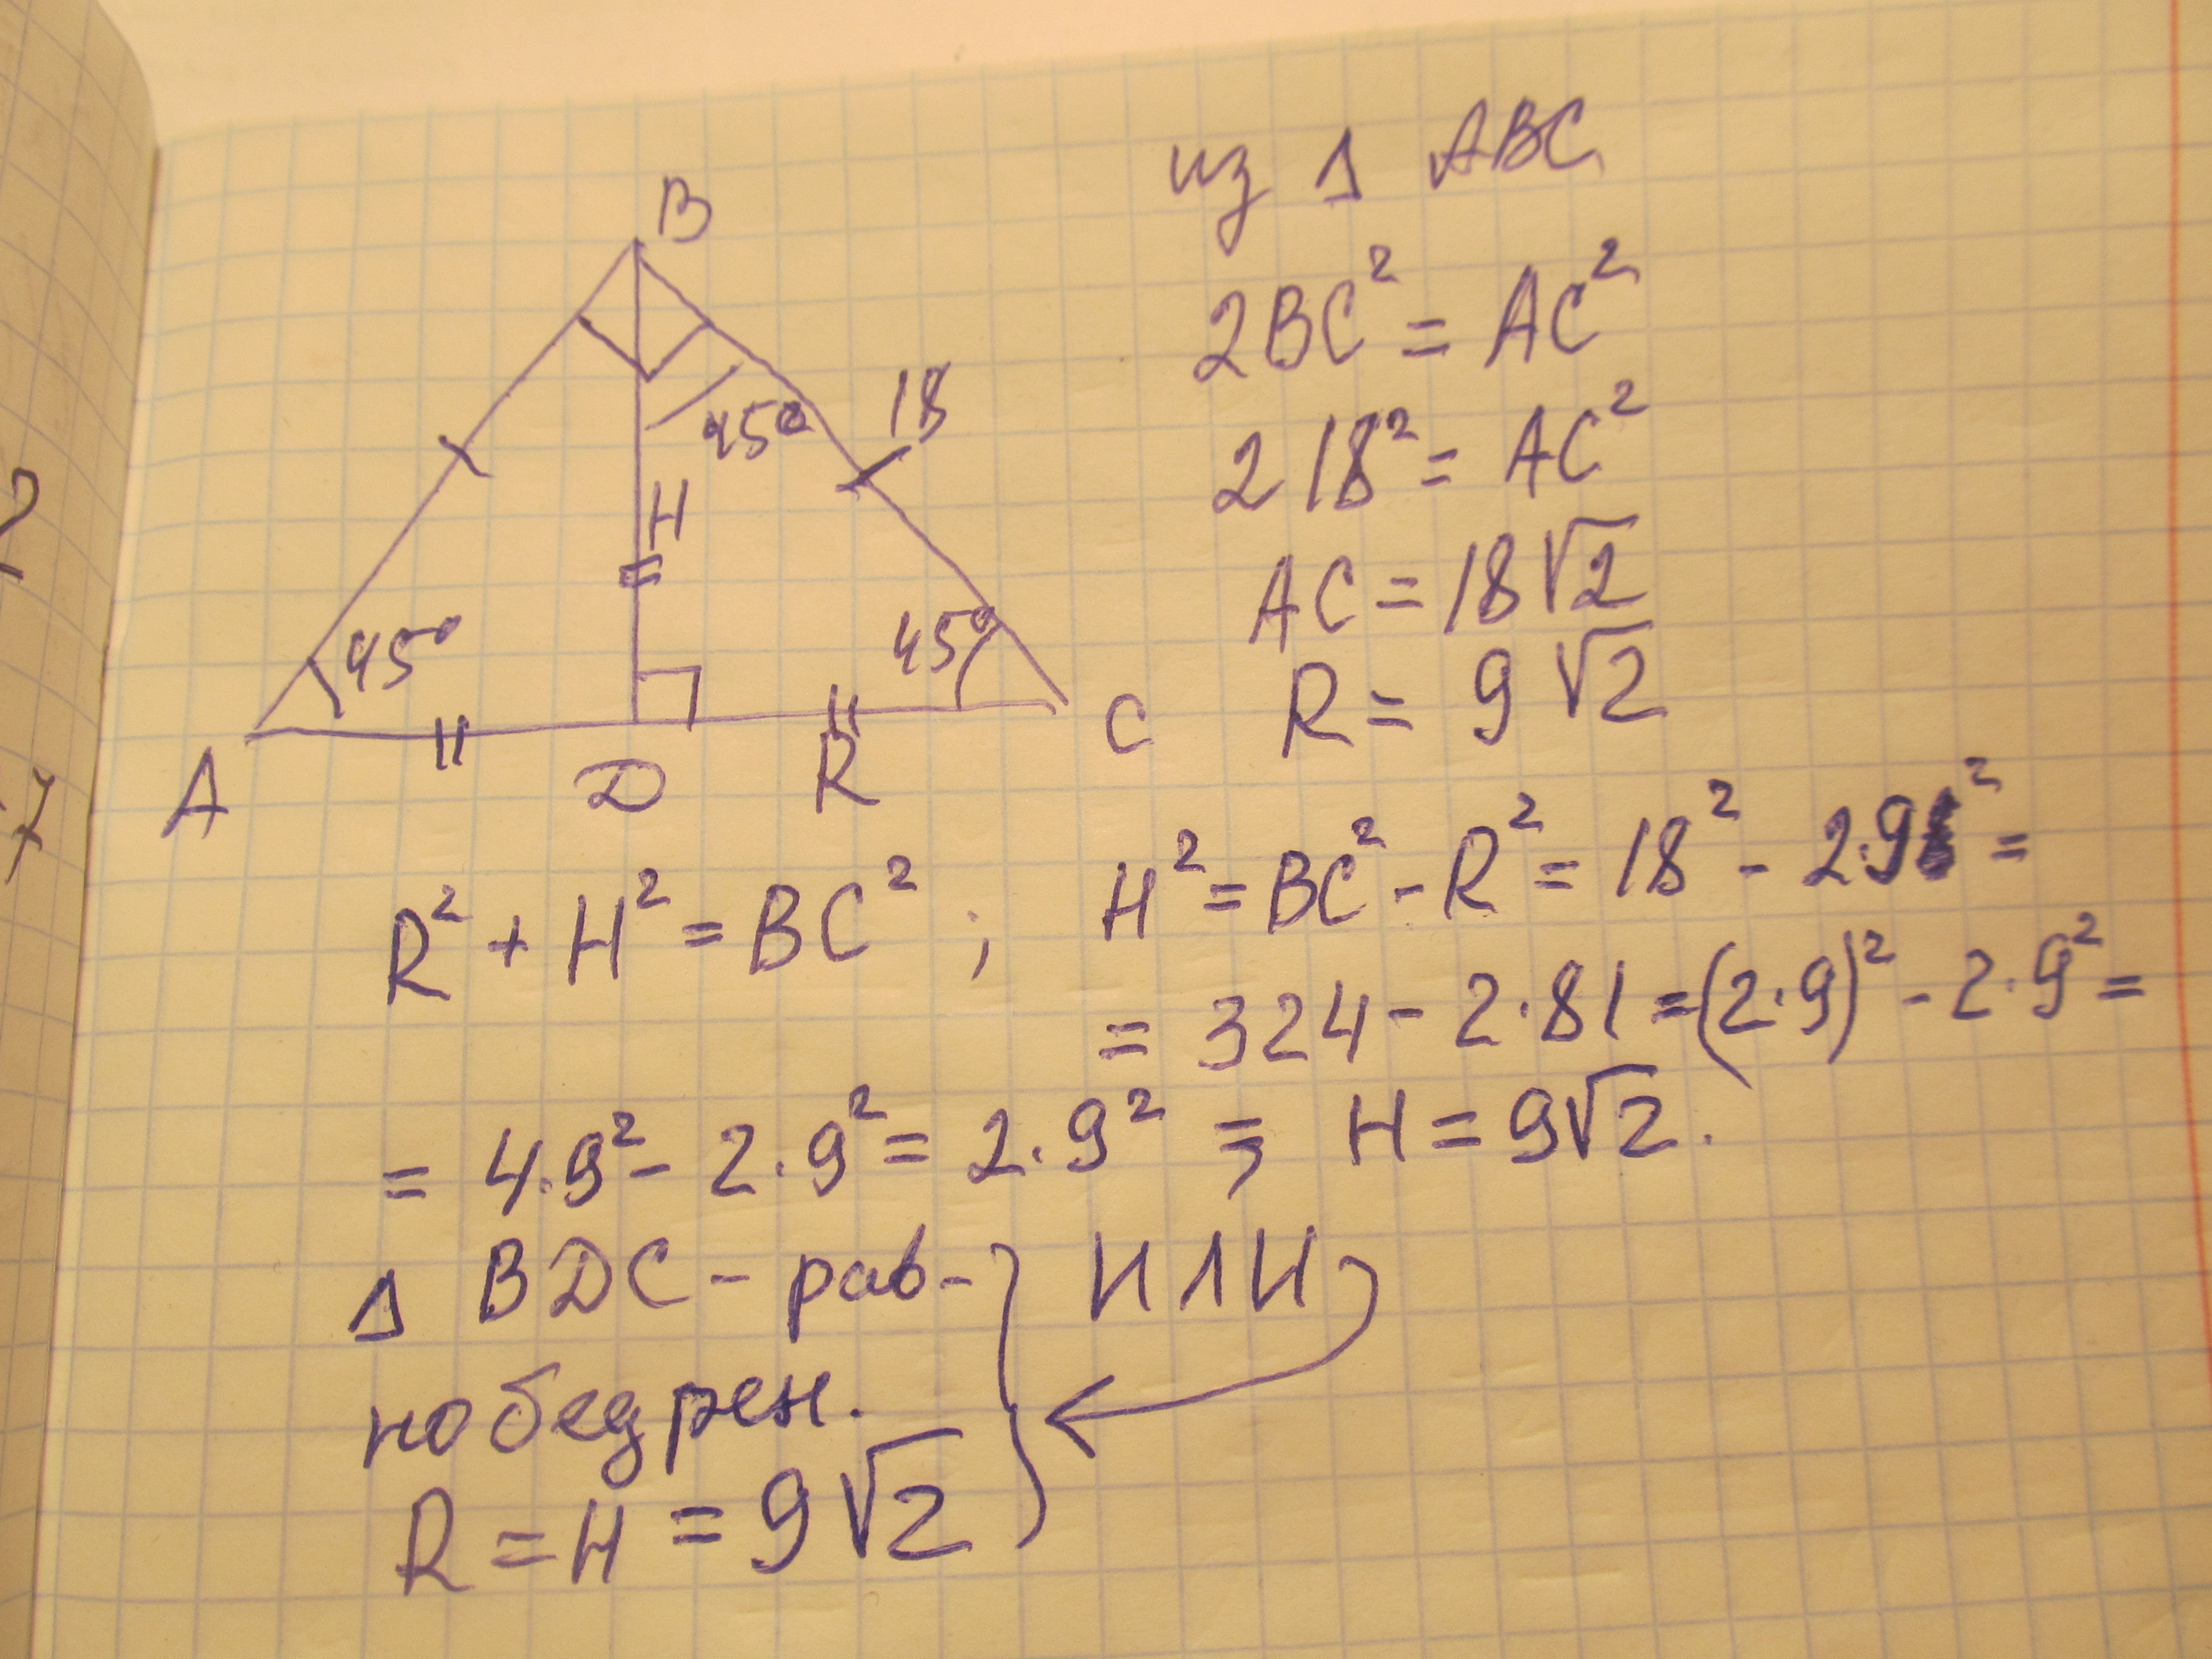 B
18
45°
H
45°
45°
A
D
R
C
из Δ ABC
2BC² = AC²
2 18² = AC²
AC = 18√2
R = 9√2
R² + H² = BC² ; H² = BC² - R² = 18² - 2·9² =
= 324 - 2·81 = (2·9)² - 2·9² =
= 4·9² - 2·9² = 2·9² ⇒ H = 9√2.
Δ BDC - рав- ИЛИ
нобедрен.
R = H = 9√2
2
7